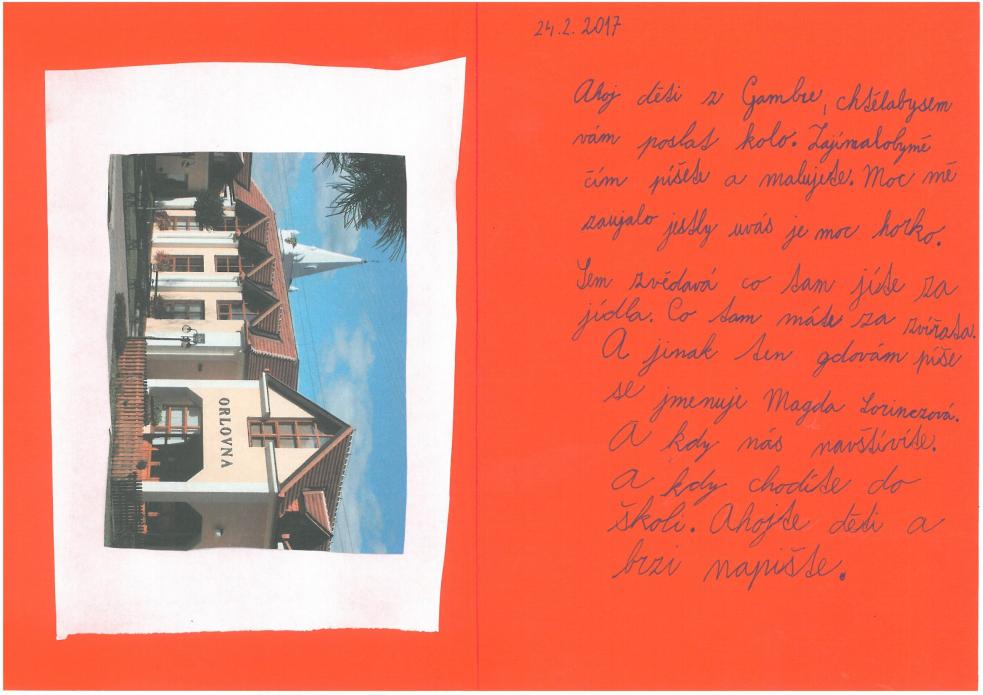 ORLOVNA
24.2.2017
Ahoj děti z Gambie, chtělabysem
vám poslat kolo. Zajímalobymě
čím píšete a malujete. Moc mě
zaujalo jestly uvás je moc horko.
Sem zvědavá co tam jíte za
jídla. Co tam máte za zvířata.
A jinak ten gdovám píše
se jmenuje Magda Lorinczová.
A kdy nás navštívíte.
A kdy chodíte do
školi. Ahojte děti a
brzi napište.